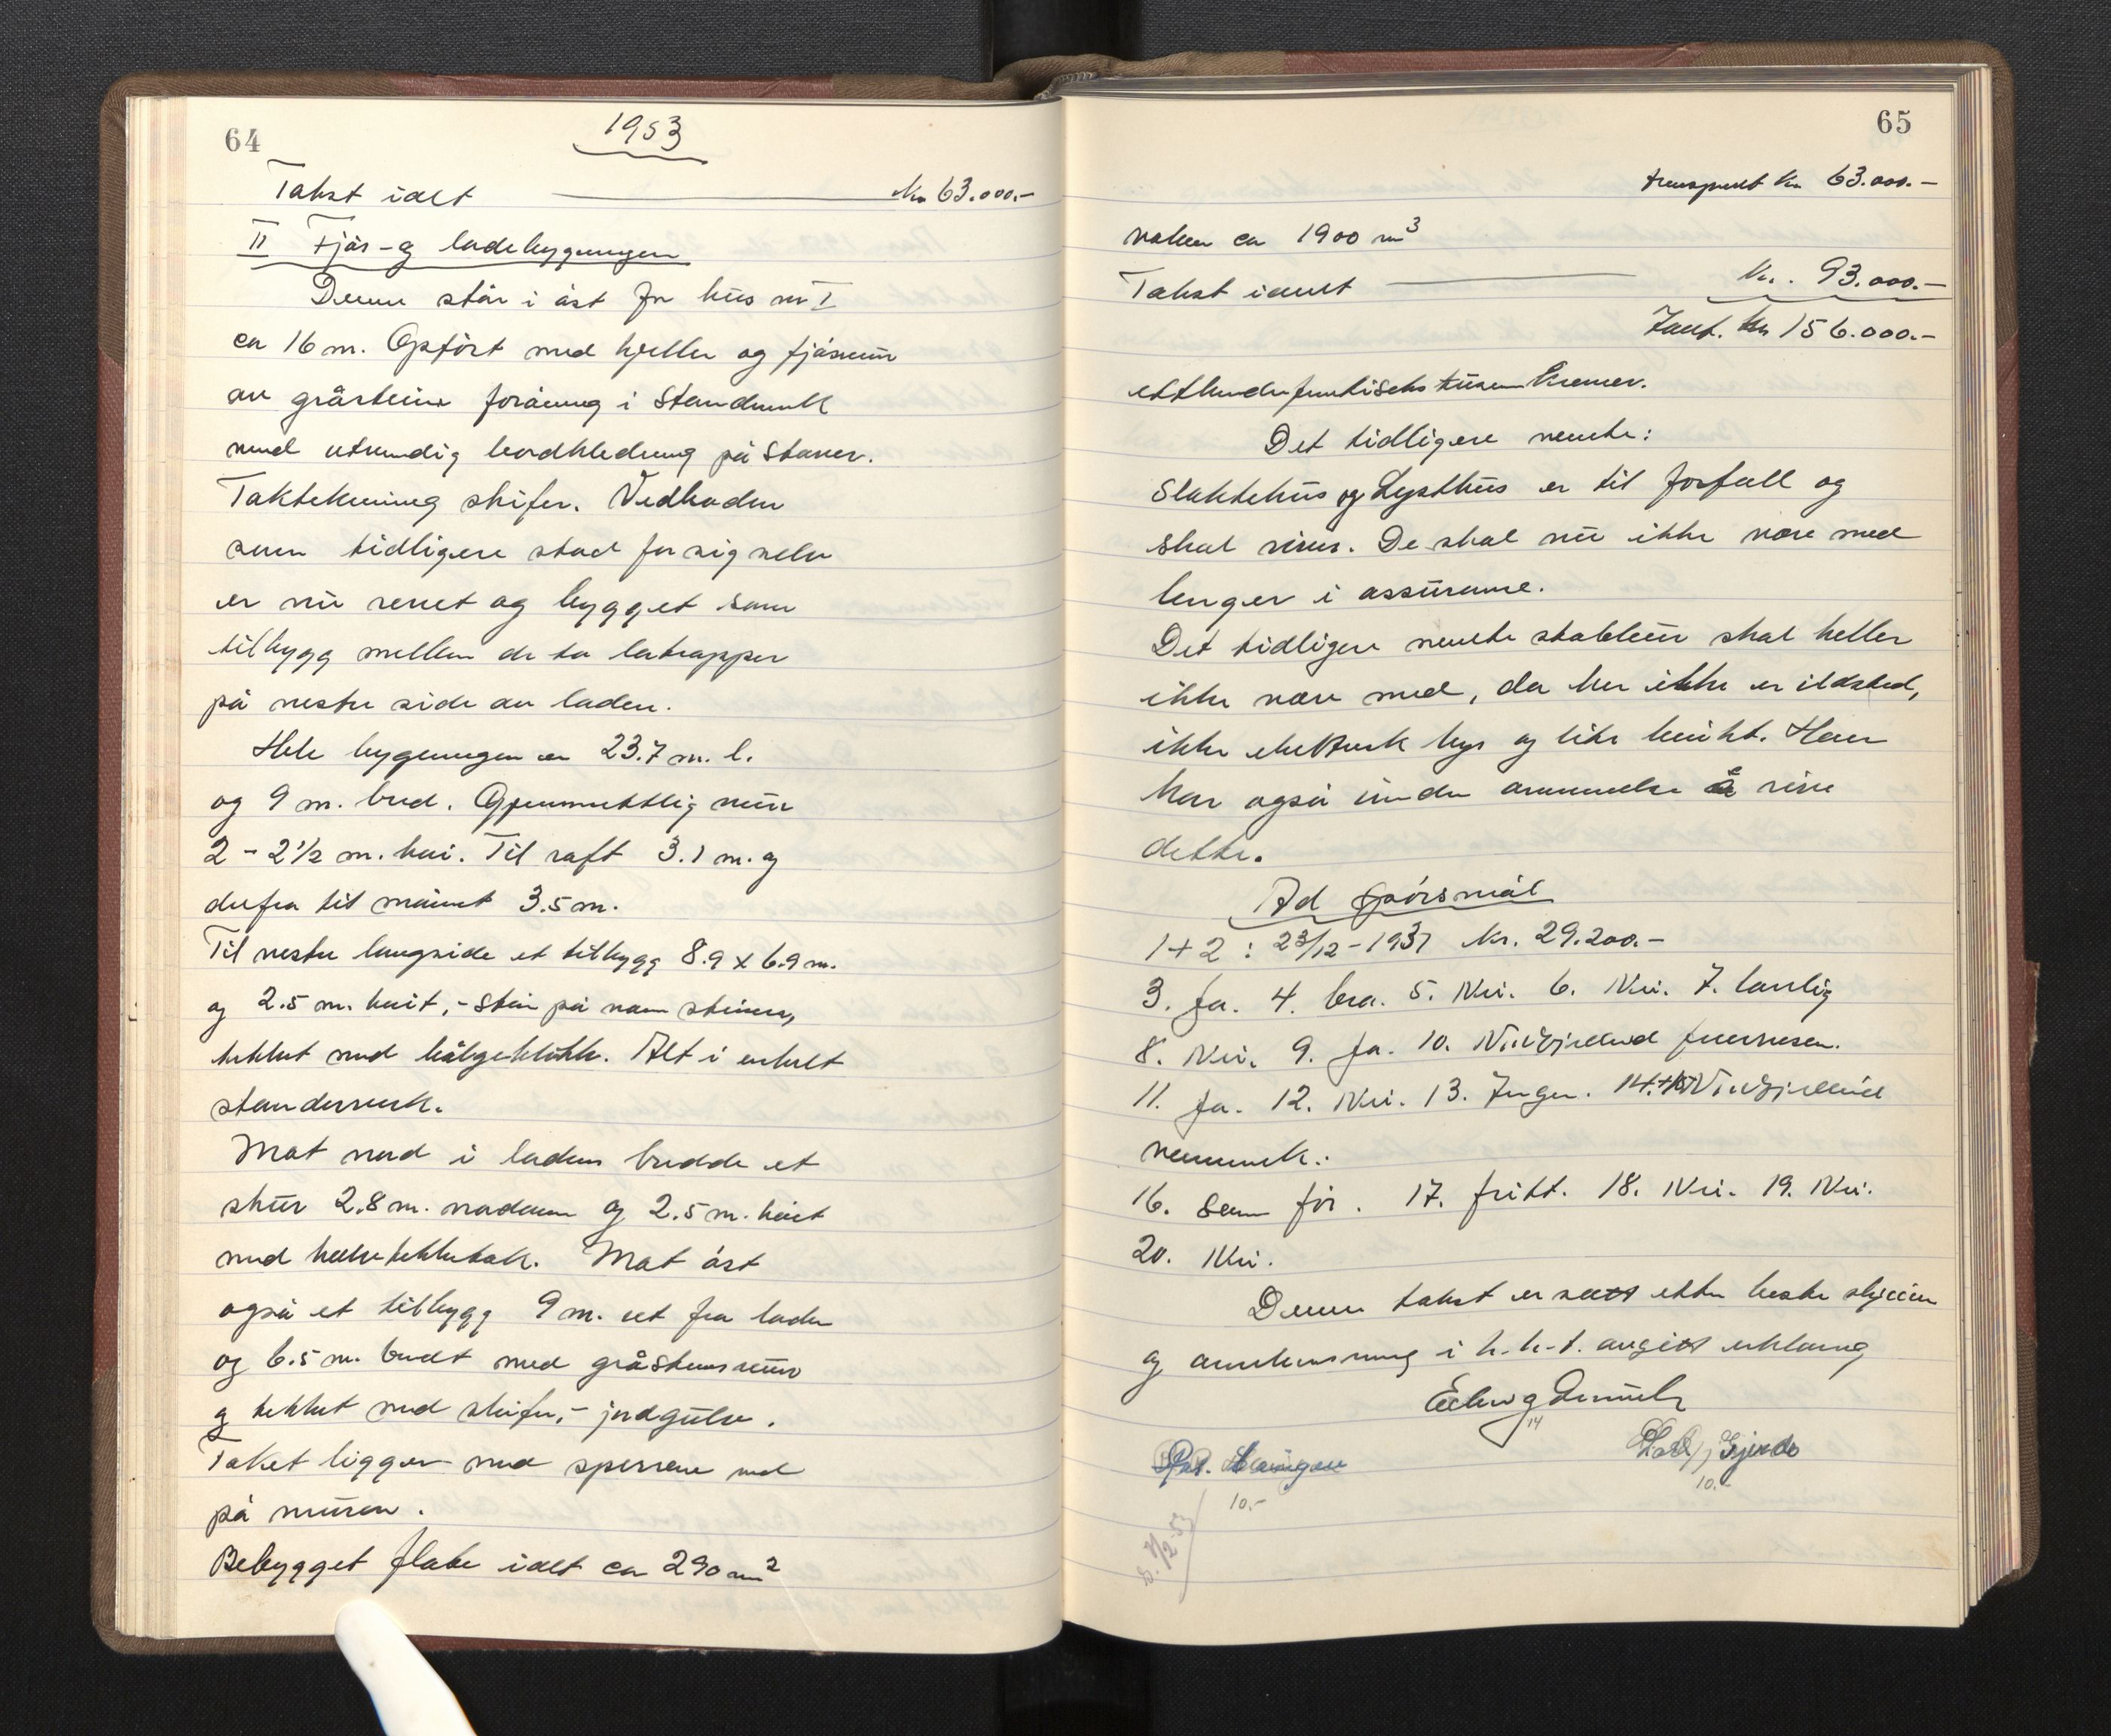 64
1953
Takst ialt Kr 63.000.-
II Fjøs- og ladebygningen
Denne står i øst for hus nr I
ca 16 m. Opført med kjeller og fjøsmur
av gråstein forøvrig i Standverk
med utvendig bordkledning på Staver.
Taktekning skifer. Vedboden
som tidligere stod for sig selv
er nu revet og bygget som
tilbygg mellem de to låtrapper
på vestre side av laden.
Hele bygningen er 23.7 m. l.
og 9 m. bred. Gjennemsnittlig mur
2 - 2 1/2 m. høi. Til raft 3.1 m. og
derfra til mønet 3.5 m.
Til vestre langside et tilbygg 8.9 x 6.9 m.
og 2.5 m. høit, - står på steiner,
tekket med bølgeblikk. Alt i enkelt
standerverk.
Mot nord i ladens bredde et
skur 2.8 m. nordover og 2.5 m. høit
med tak. Mot øst
også et tilbygg 9 m. ut fra laden
og 6.5 m. bredt med gråstensmur
og tekket med skifer, - jordgulv.
Taket ligger med sperrene ned
på muren.
Bebygget flate ialt ca 290 m²
65
transport kr 63.000.-
volum ca 1900 m³
Takst ialt Kr. 93.000.-
Tanf. kr 156.000.-
etthundrefemtiseks tusen kroner.
Det tidligere nevnte:
Slaktehus og Lysthus er til forfall og
skal rives. De skal nu ikke være med
lenger i assuranse.
Det tidligere nevnte stabbur skal heller
ikke være med, da her ikke er ildsted,
ikke elektrisk lys og lite brukt. Han
har også under å rive
dette.
Ad spørsmål
1+2 : 23/12 - 1937 Kr. 29.200.-
3. Ja. 4. bra. 5. Nei. 6. Nei. 7. lovlig
8. Nei. 9. Ja. 10. Vedgjellend
11. Ja. 12. Nei. 13. Ingen. 14.+15 Vedgjellend

16. Som før. 17. fritt. 18. Nei. 19. Nei.
20. Nei.
Denne takst er satt efter beste skjønn
og i h.h.t. avgitt erklæring
14
10.-
10.-